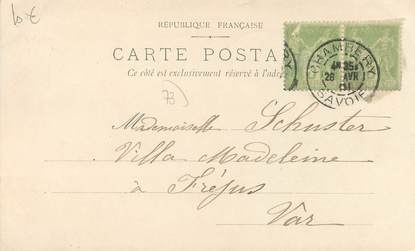 10 €
RÉPUBLIQUE FRANÇAISE
CARTE POSTA
Ce côté est exclusivement réservé à l'adre
CHAMBERY
28 AVR
01
SAVOIE
73
Mademoiselle Schuster
Villa Madeleine
à Fréjus
Var